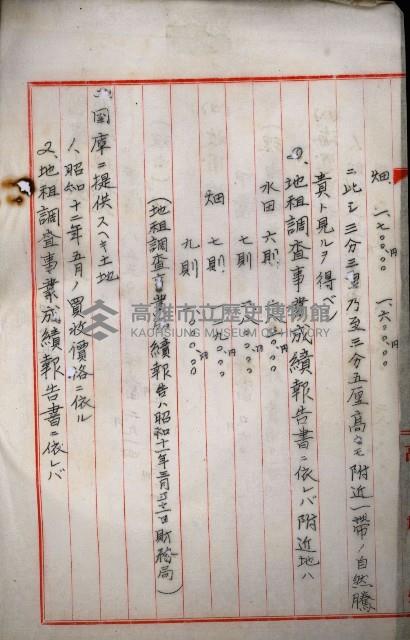 畑 一七〇〇、〇〇円 一六〇〇、〇〇円
ニ比シ三分三厘乃至三分五厘高ナルモ附近一帶ノ自然騰
貴ト見ルヲ得ベ
(3)、地租調査事業成績報告書ニ依レバ附近地ハ
水田 六則
七則
畑 七則
九則
(地租調査事業成績報告ハ昭和十一年三月三十一日財務局)
国庫ニ提供スヘキ土地
1、昭和十二年五月ノ買收價洛ニ依ル
2、地租調査事業成績報告書ニ依レバ
高雄市立歷史博物館
KAOHSIUNG MUSEUM OF HISTORY